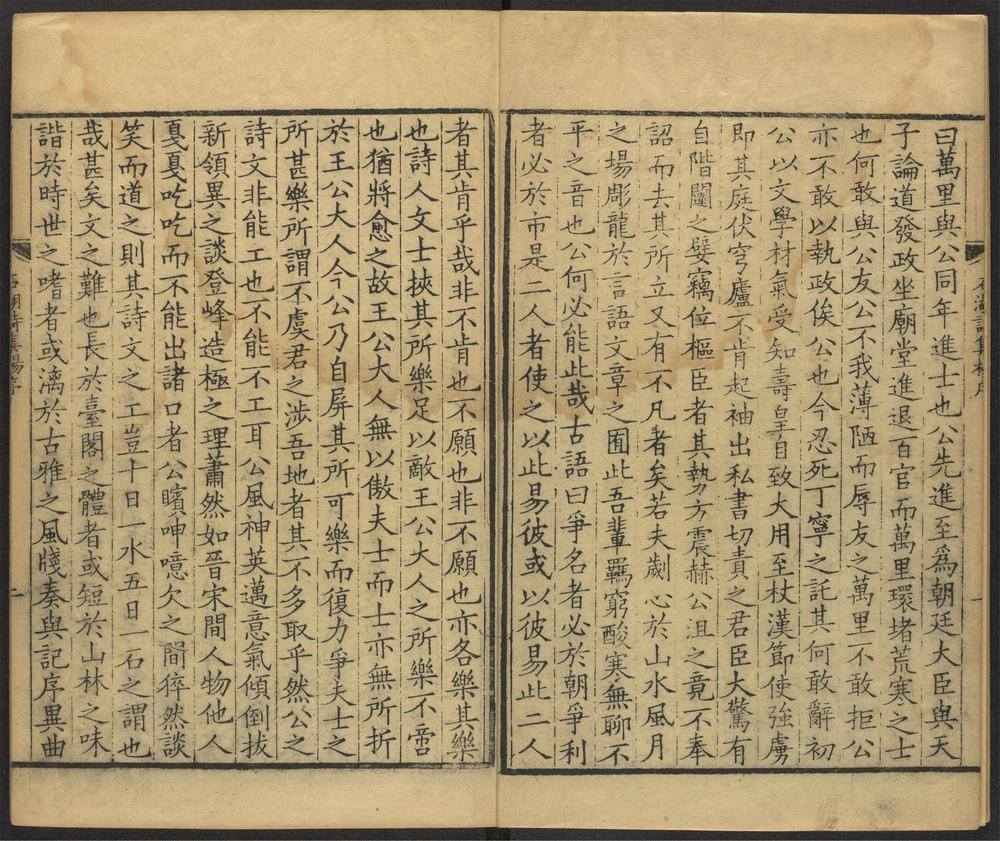 曰萬里與公同年進士也公先進至爲朝廷大臣與天
子論道發政坐廟堂進退百官而萬里環堵荒寒之士
也何敢與公友公不我薄陋而辱友之萬里不敢拒公
亦不敢以執政俟公也今忍死丁寧之託其何敢辭初
公以文學材氣受知壽皇自致大用至杖漢節使強虜
即其庭伏穹廬不肯起袖出私書切責之君臣大驚有
自階闥之嬖竊位樞臣者其執方震赫公沮之竟不奉
詔而去其所立又有不凡者矣若夫劌心於山水風月
之場彫龍於言語文章之囿此吾輩羈窮酸寒無聊不
平之音也公何必能此哉古語曰爭名者必於朝爭利
者必於市是二人者使之以此易彼或以彼易此二人
者其肯乎哉非不肯也不願也非不願也亦各樂其樂
也詩人文士挾其所樂足以敵王公大人之所樂不啻
也猶將愈之故王公大人無以傲夫士而士亦無所折
於王公大人今公乃自屏其所可樂而復力爭夫士之
所甚樂所謂不虞君之涉吾地者其不多取乎然公之
詩文非能工也不能不工耳公風神英邁意氣傾倒拔
新領異之談登峰造極之理蕭然如晉宋間人物他人
戛戛吃吃而不能出諸口者公矉呻噫欠之間猝然談
笑而道之則其詩文之工豈十日一水五日一石之謂也
哉甚矣文之難也長於臺閣之體者或短於山林之味
諧於時世之嗜者或漓於古雅之風牋奏與記序異曲